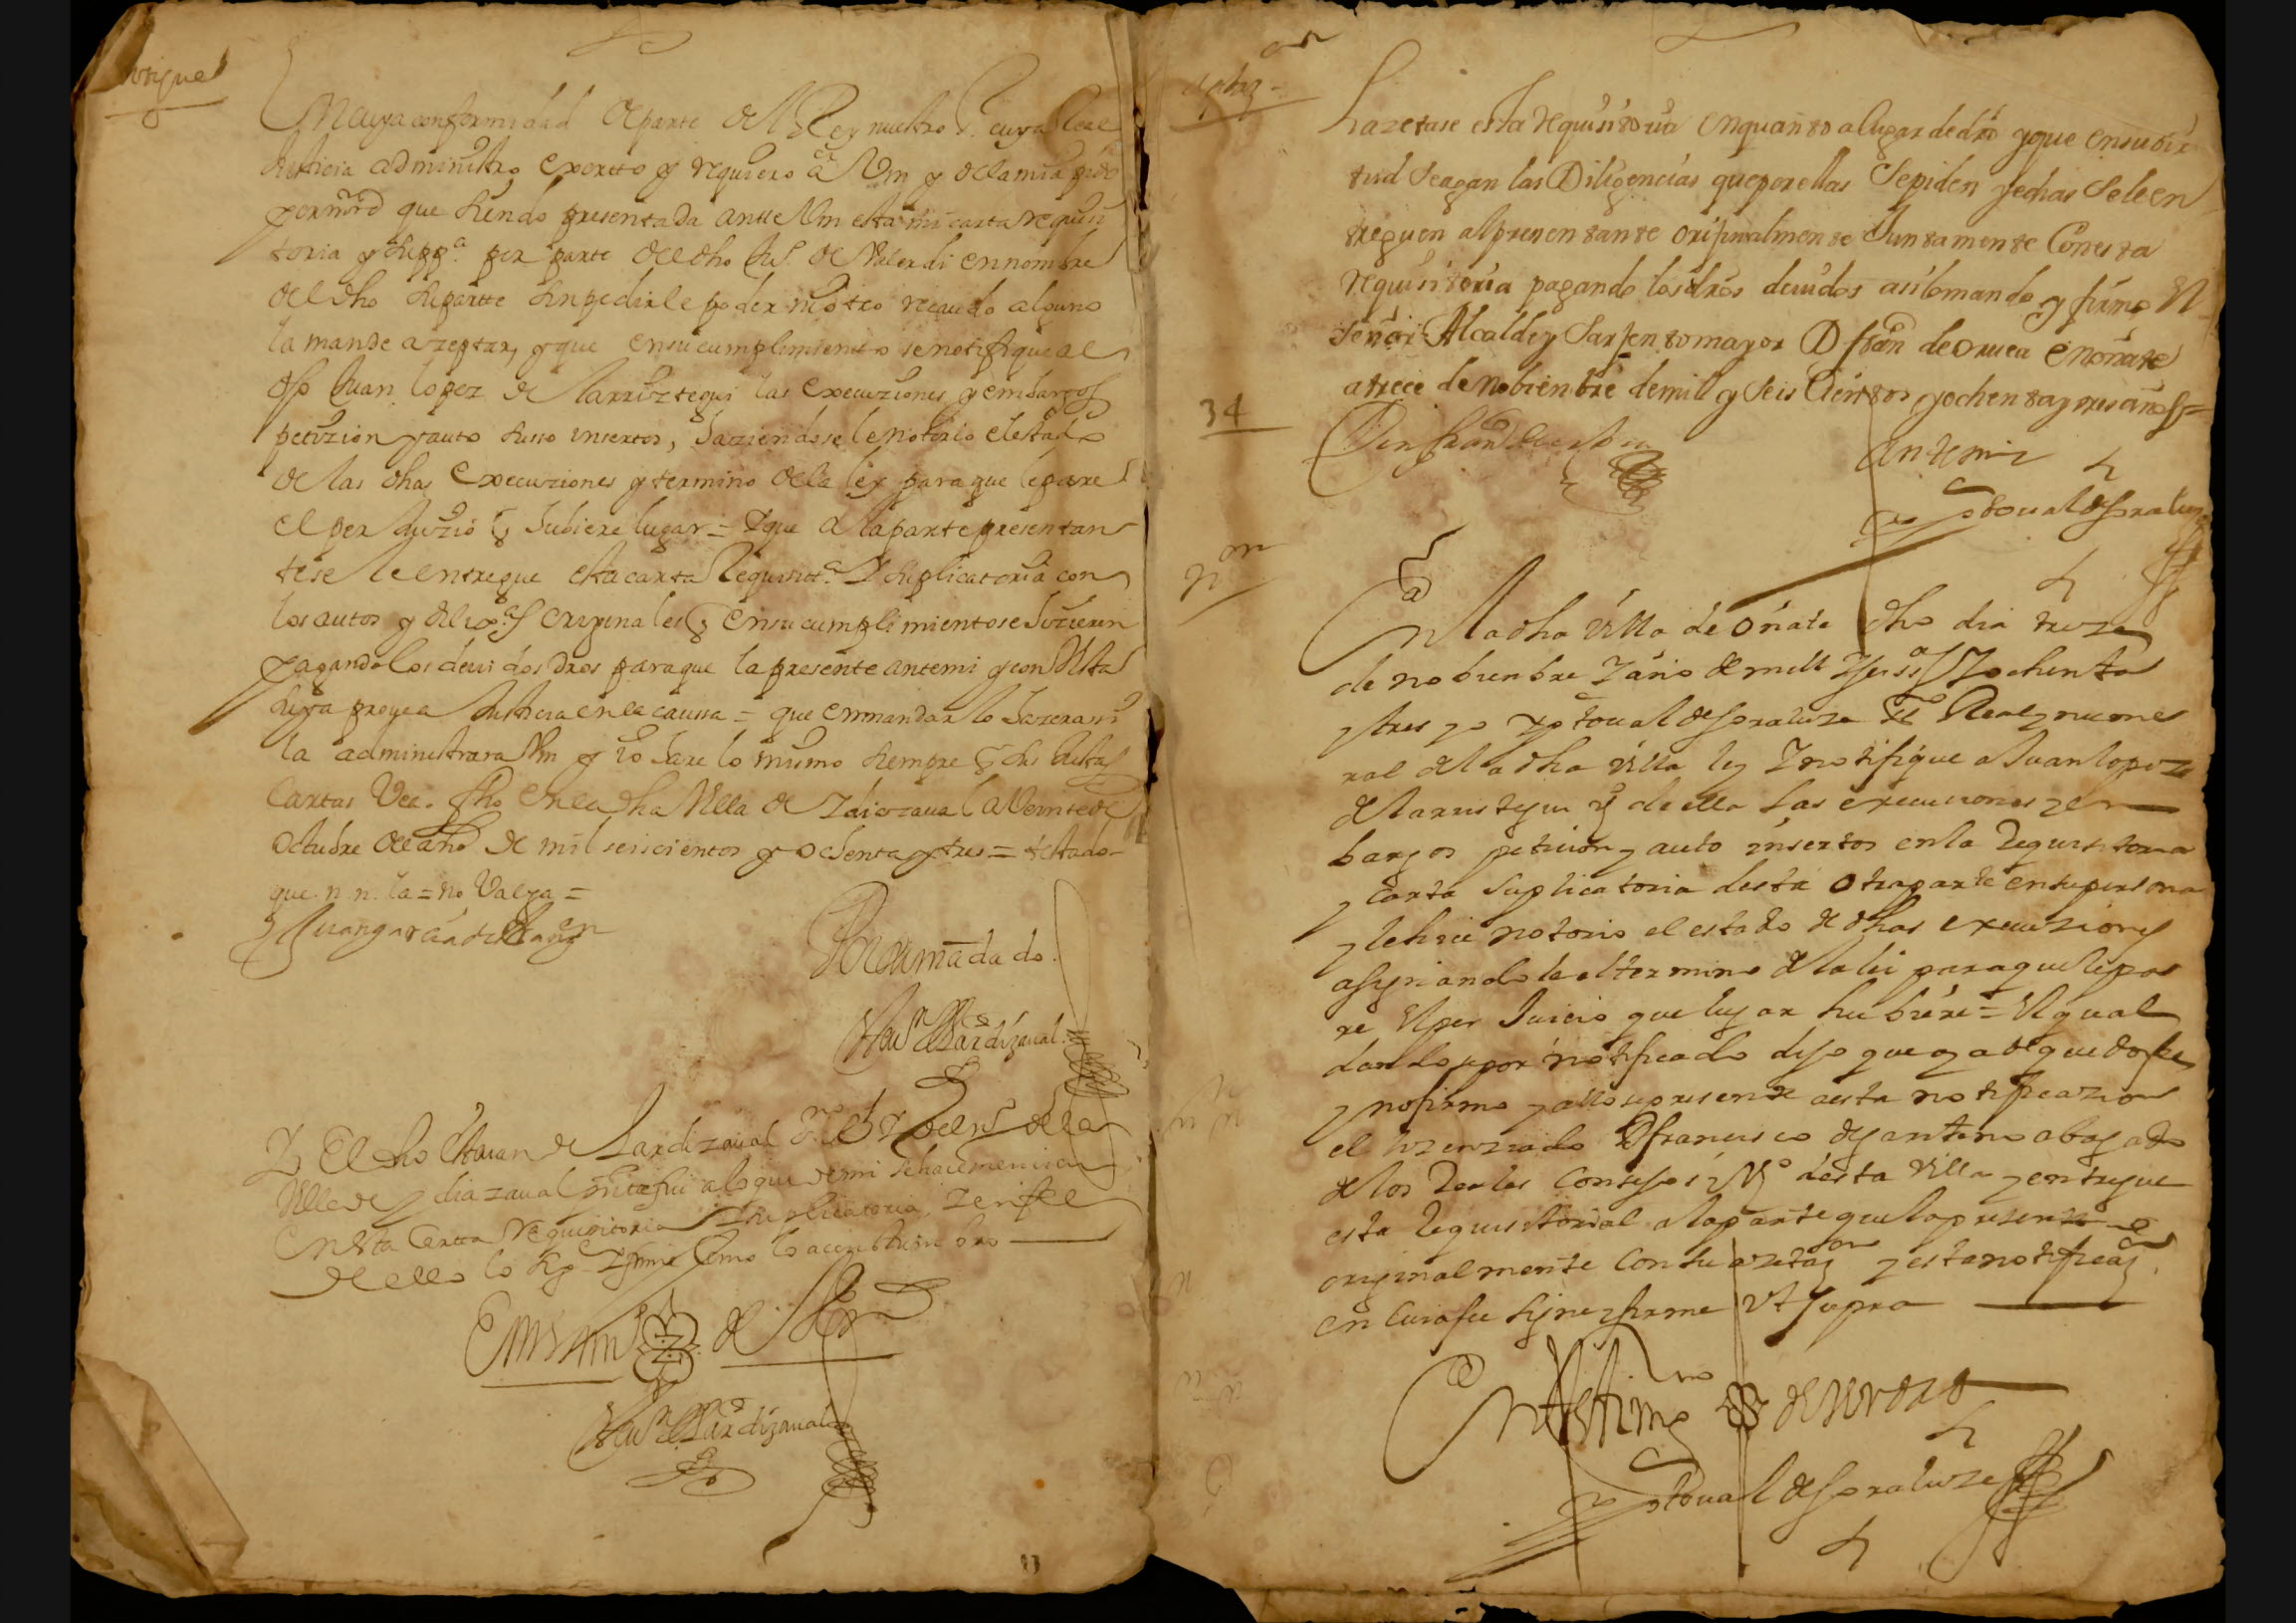 prosigue
En cuya conformidad de parte del Rey nuestro S.r cuya Real
Justicia administro exorto y requiero a Vm y de la mia pido
por mrd que siendo presentada ante Vm esta mi carta requisi
toria y supp.a por parte del dho Ju.o de Valerdi en nombre
del dho su parte sin pedirle poder ni otro recaudo alguno
la mande azeptar, y que en su cumplimiento se notifique al
dho Juan lopez de Larriztegui las execuziones y embargos
petizion y auto suso insertos, haziendosele notorio el estado
de las dhas execuziones y termino de la ley para que le pare
el perjuizio q hubiere lugar = Y que a la parte presentan
te se le entregue esta carta Requisit.a y suplicatoria con
los autos y dilix.as originales q en su cumplimiento se hizieren
pagando los deuidos dros para que la presente ante mi y con Vista
suya prouea Justicia en la causa = que en mandar lo hazer assi
la administrara Vm y yo hare lo mismo siempre q sus Justas
Cartas Vea. fho en la dha Villa de Ydiazaual a Veinte de
Octubre del año de mil seiscientos y ochenta y tres = testado
que. n. n. la = no Valga =
Juan garcia de
Por su mādado.
Estau.n de Lardizaual.
Yo El dho Estauan de Lardizaual s.no del Rey nro s.r y del n.o de la
Villa de Ydiazaual presente fui a lo que de mi se haze mencion
En esta Carta Requisitoria y suplicatoria, y en fee
de ello lo signe y firme como lo acostumbro
En testim.o de Ver.d
Estau.n de Lardizaual
aptaz.on
hazetase esta requisitoria en quanto a lugar de dro y que en su vir
tud se agan las Diligencias que por ellas se piden y echas se le en
treguen al presentante orijinalmente Juntamente Con esta
requisitoria pagando los dros deuidos asi lo mando y firmo El
señor Alcalde y Sarjento mayor D fran.co de oruea en oñate
a trece de nobienbre de mill y seis Cientos y ochenta y tres años =
34
Don fran.co de
Ante mi
Xptoual de soraluze
n.on
En la dha Villa de oñate dho dia treze
de nobienbre y año de mill y seis.os y ochenta
y tres yo xptoual de soraluze ss.no Real y nume
ral de la dha Villa ley y notifique a Juan lopez
de Larristegui v.o de ella las execuciones y em
bargos peticion y auto insertos en la Requisitoria
y carta suplicatoria desta otra parte en su persona
y le hice notorio el estado de dhas execuziones
asignandole el termino de la lei para que le pa
re el per Juicio que lugar hubiere = El qual
dandose por notificado dijo que
y no firmo y allose presente a esta notificazion
el lizenziado D francisco de antono abogado
de los Reales Consejos v.o desta Villa y entregue
esta Requisitorial a la parte que la presento
originalmente con su azetaz.on y esta notificaz.on
en cuia fee signe y firme Vt supra
En testim.o de Verdad
Xptoual de soraluze